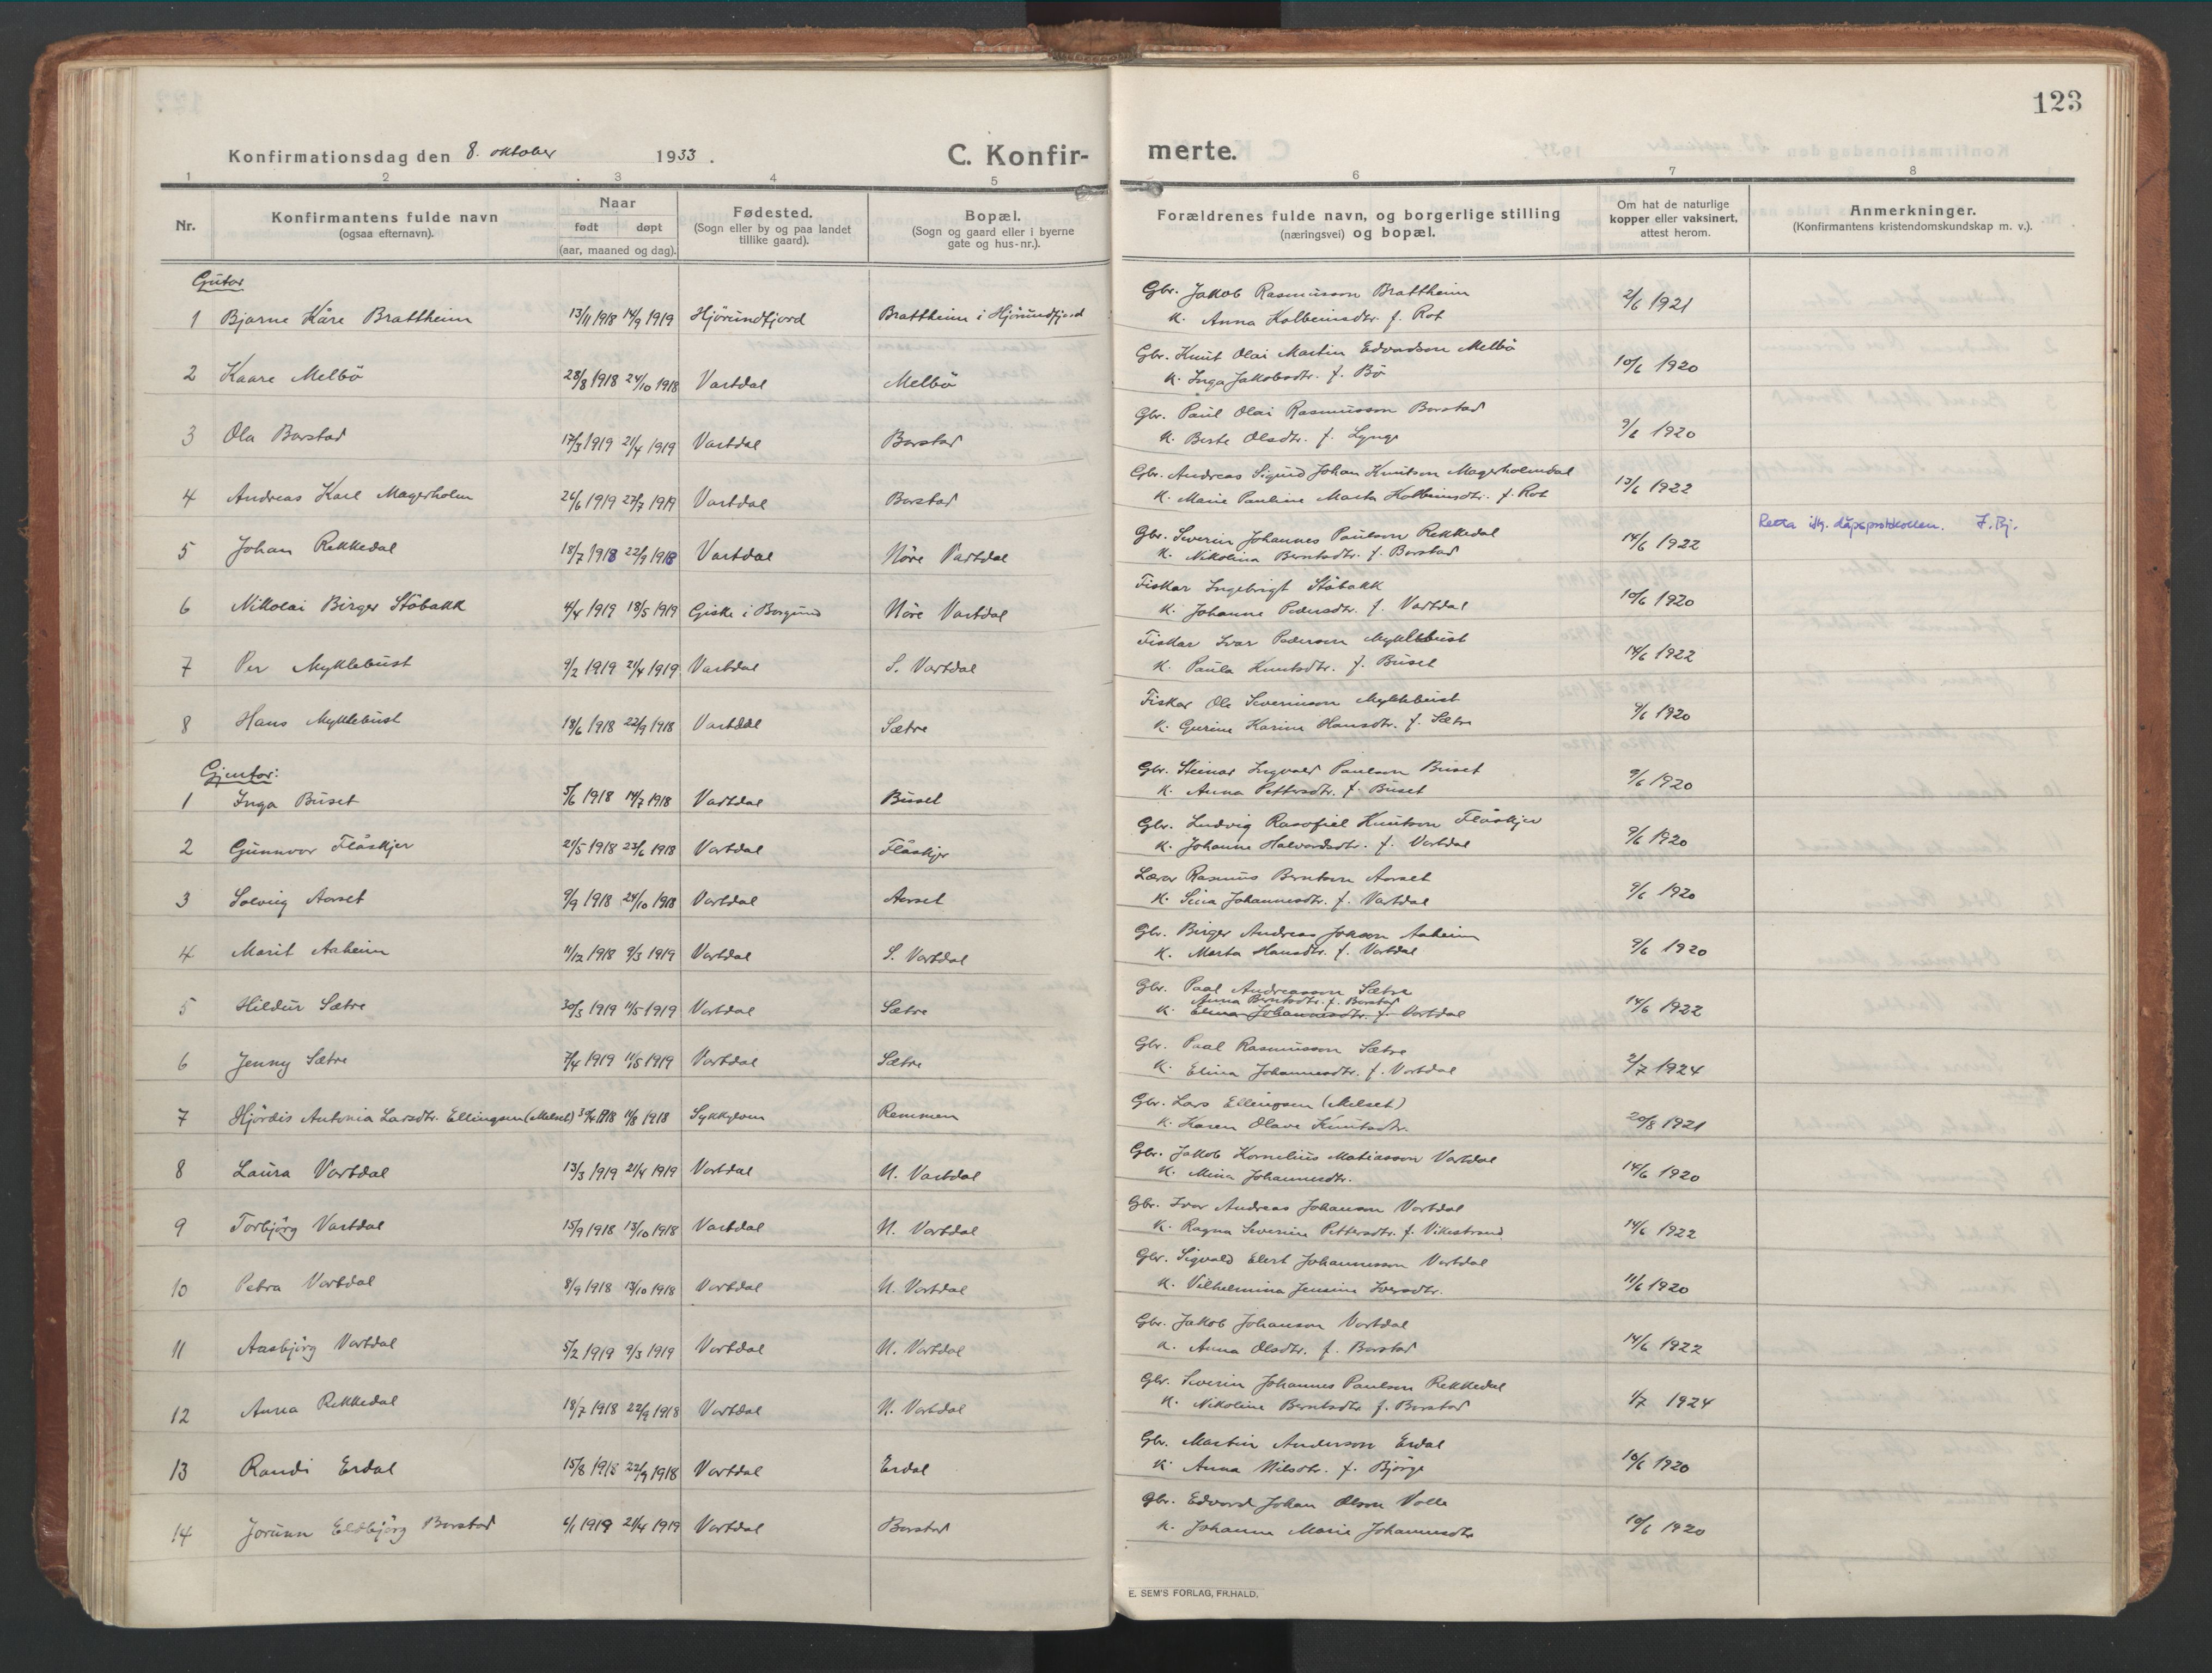 123
Konfirmationsdag den 8. oktober 1933. C. Konfirmerte.
1 2 3 4 5 6 7 8
Nr. Konfirmantens fulde navn (ogsaa efternavn). Naar født døpt (aar, maaned og dag). Fødested. (Sogn eller by og paa landet tillike gaard). Bopæl. (Sogn og gaard eller i byerne gate og hus-nr.). Forældrenes fulde navn, og borgerlige stilling (næringsvei) og bopæl. Om hat de naturlige kopper eller vaksinert, attest herom. Anmerkninger. (Konfirmantens kristendomskundskap m. v.).
Gutar
1 Bjarne Kåre Brattheim 13/11 1918 14/9 1919 Hjörundfjord Brattheim i Hjörundfjord Gbr. Jakob Rasmusson Brattheim 2/6 1921
K. Anna Kolbeinsdtr. f. Rot
2 Kaare Melbö 28/8 1918 24/10 1918 Vartdal Melbö Gbr. Knut Olai Martin Edvardson Melbö 10/6 1920
K. Inga Jakobsdtr. f. Bö
3 Ola Barstad 17/3 1919 21/4 1919 Vartdal Barstad Gbr. Paul Olai Rasmusson Barstad 9/6 1920
K. Berte Olsdtr. f. Lynge
4 Andreas Karl Magerholm 26/6 1919 27/7 1919 Vartdal Barstad Gbr. Andreas Sigurd Johan Knutson Magerholmdal 13/6 1922
K. Marie Pauline Marta Kolbeinsdtr. f. Rot
5 Johan Rekkedal 18/7 1918 22/9 1918 Vartdal Nöre Vartdal Gbr. Severin Johannes Paulson Rekkedal 14/6 1922 Retta ifg. dåpsprotokollen. J. Bj.
K. Nikolina Berntsdtr. f. Barstad
6 Nikolai Birger Stöbakk 4/4 1919 18/5 1919 Giske i Borgund Nöre Vartdal Fiskar Ingebrigt Stöbakk 10/6 1920
K. Johanne Pedersdtr. f. Vartdal
7 Per Myklebust 9/2 1919 21/4 1919 Vartdal S. Vartdal Fiskar Ivar Pederson Myklebust 14/6 1922
K. Paula Knutsdtr. f. Buset
8 Hans Myklebust 18/6 1918 22/9 1918 Vartdal Sætre Fiskar Ole Severinson Myklebust 9/6 1920
K. Gurine Karine Hansdtr. f. Sætre
Gjentor:
1 Inga Buset 5/6 1918 14/7 1918 Vartdal Buset Gbr. Steinar Ingvald Paulson Buset 9/6 1920
K. Anna Pettersdtr. f. Buset
2 Gunnvor Flåskjer 21/5 1918 23/6 1918 Vartdal Flåskjer Gbr. Ludvig Rasofiel Knutson Flåskjer 9/6 1920
K. Johanne Halvardsdtr. f. Vartdal
3 Solveig Aarset 9/9 1918 24/10 1918 Vartdal Aarset Lærar Rasmus Berntson Aarset 9/6 1920
K. Sina Johannesdtr. f. Vartdal
4 Marit Aaheim 11/12 1918 9/3 1919 Vartdal S. Vartdal Gbr. Birger Andreas Jakson Aaheim 9/6 1920
K. Marta Hansdtr. f. Vartdal
5 Hildur Sætre 30/3 1919 11/5 1919 Vartdal Sætre Gbr. Paal Andreasson Sætre 14/6 1922
Anna Berntsdtr. f. Barstad
K. Elina Johannesdtr. f. Vartdal
6 Jenny Sætre 7/4 1919 11/5 1919 Vartdal Sætre Gbr. Paal Rasmusson Sætre 2/7 1924
K. Elina Johannesdtr. f. Vartdal
7 Hjördis Antonia Larsdtr. Ellingsen (Melset) 30/4 1918 11/8 1918 Sykkylven Remmen Gbr. Lars Ellingsen (Melset) 20/8 1921
K. Karen Olave Knutsdtr.
8 Laura Vartdal 13/3 1919 21/4 1919 Vartdal N. Vartdal Gbr. Jakob Kornelius Matiasson Vartdal 14/6 1920
K. Mina Johannesdtr.
9 Torbjörg Vartdal 15/9 1918 13/10 1918 Vartdal N. Vartdal Gbr. Ivar Andreas Johanson Vartdal 14/6 1922
K. Ragna Severine Pettersdtr. f. Vikestrand
10 Petra Vartdal 8/9 1918 13/10 1918 Vartdal N. Vartdal Gbr. Sigvald Elert Johannesson Vartdal 11/6 1920
K. Vilhelmina Jensine Iversdtr.
11 Aasbjörg Vartdal 5/2 1919 9/3 1919 Vartdal N. Vartdal Gbr. Jakob Johanson Vartdal 14/6 1922
K. Anna Olsdtr. f. Barstad
12 Aurea Rekkedal 18/7 1918 22/9 1918 Vartdal N. Vartdal Gbr. Severin Johannes Paulson Rekkedal 1/7 1924
K. Nikoline Berntsdtr f. Barstad
13 Randi Erdal 15/8 1918 22/9 1918 Vartdal Erdal Gbr. Martin Anderson Erdal 10/6 1920
K. Anna Nilsdtr. f. Bjørge
14 Jorunn Eldbjörg Barstad 6/1 1919 21/4 1919 Vartdal Barstad Gbr. Edvard Johan Olson Volle 10/6 1920
K. Johanne Marie Johannesdtr
E. SEM'S FORLAG, FR.HALD.